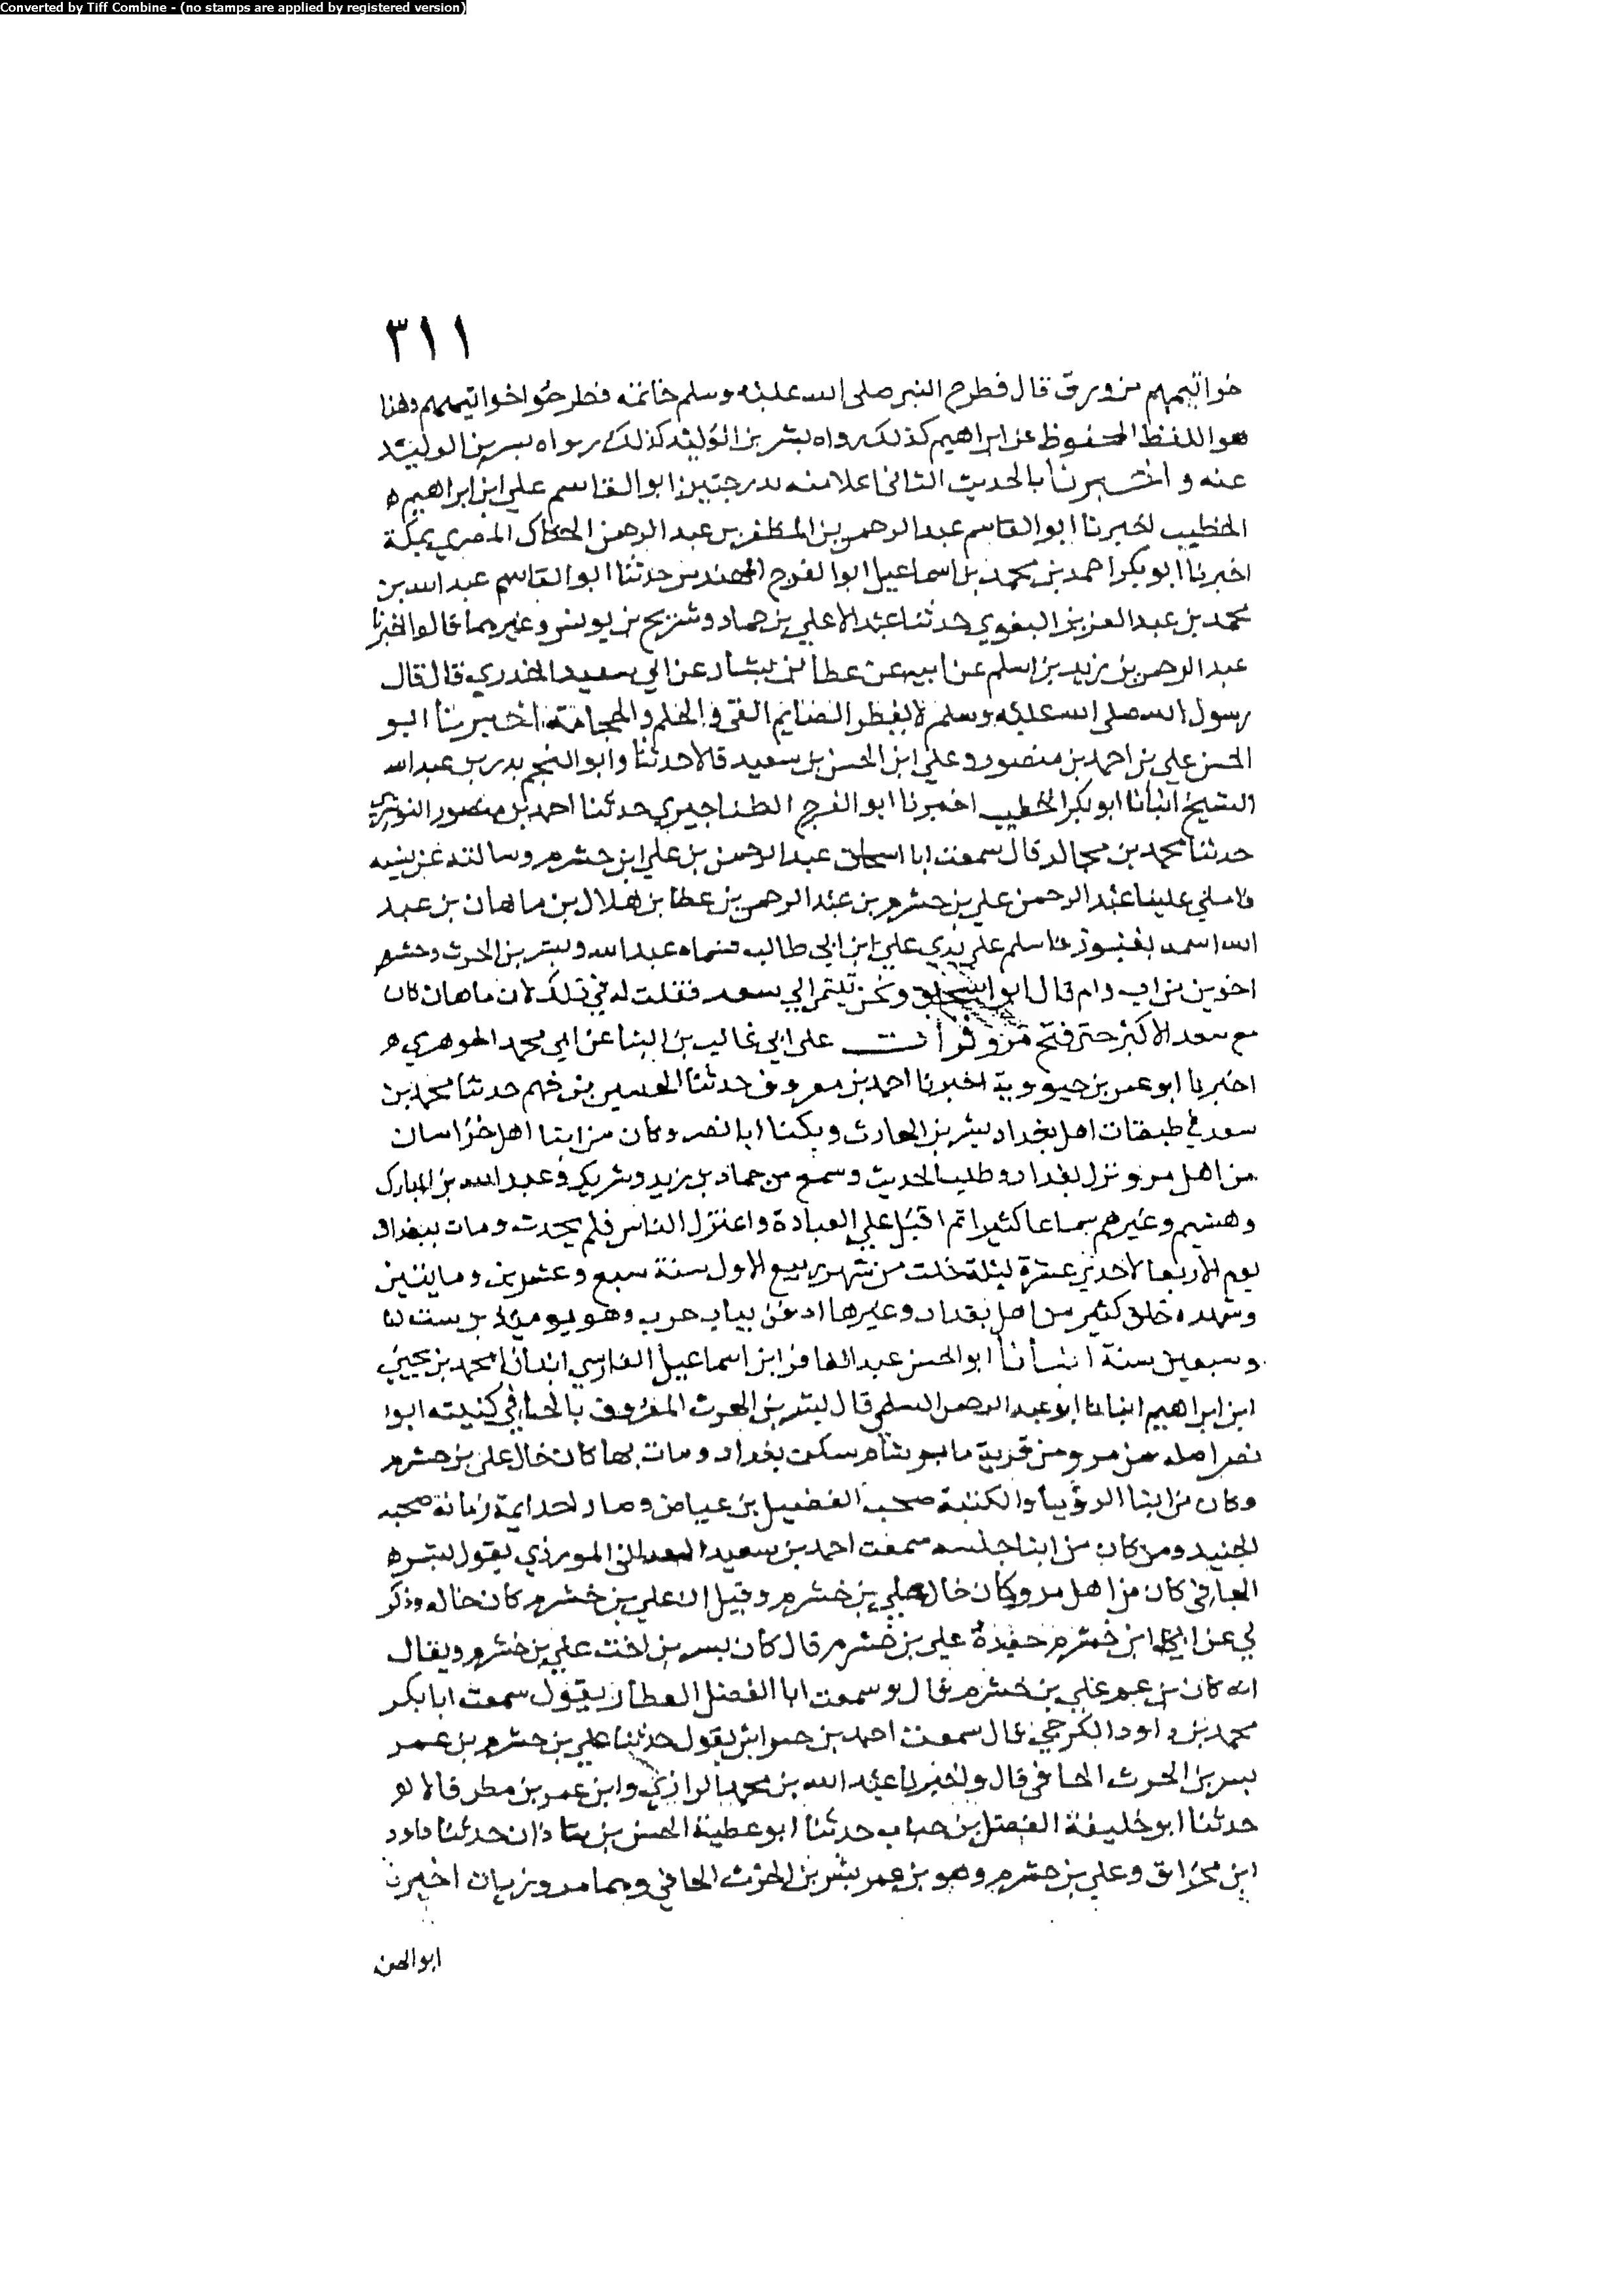 Converted by Tiff Combine - (no stamps are applied by registered version)
٣١١
خواتيمهم من ورق قال فطرح النبي صلى الله عليه وسلم خاتمه فطرحوا خواتيمهم وهذا
هو اللفظ المحفوظ عن ابراهيم كذلك رواه بشر بن الوليد كذلك رواه بسر بن الوليد
عنه و اخبرنا بالحديث الثاني اعلا منه بدرجتين ابو القاسم علي ابن ابراهيم ه
الخطيب اخبرنا ابو القاسم عبد الرحمن بن المظفر بن عبد الرحمن الحكاك المصري بمكة
اخبرنا ابو بكر احمد بن محمد بن اسماعيل ابو الفرج المهندس حدثنا ابو القاسم عبد الله بن
محمد بن عبد العزيز البغوي حدثنا عبد الاعلي بن حماد وشريح بن يونس وغيرهما قالوا اخبرنا
عبد الرحمن بن زيد بن اسلم عن ابيه عن عطا بن يسار عن ابي سعيد الخدري قال قال
رسول الله صلى الله عليه وسلم لا يفطر الصايم القي والحلم والحجامة اخبرنا ابو
الحسن علي بن احمد بن منصور وعلي ابن الحسن بن سعيد قالا حدثنا وابو النجم بدر بن عبد الله
الشيخ انبانا ابو بكر الخطيب اخبرنا ابو الفرج الطناجيري حدثنا احمد بن منصور النوشري
حدثنا محمد بن مخالد قال سمعت ابا اسحاق عبد الرحمن بن علي ابن خشرم وسالته عن نسبه
فاملي علينا عبد الرحمن علي بن خشرم بن عبد الرحمن بن عطا بن هلال بن ماهان بن عبد
الله اسمه بغبور فاسلم علي يدي علي ابن ابي طالب فسماه عبد الله وبشر بن الحرث وخشرم
اخوين من اب وام قال ابو اسحاق ونحن ننتمي الي سعد فقلت له في ذلك لان ماهان كان
مع سعد الاكبر حتي فتح مرو قرأت علي ابي غالب بن البنا عن ابي محمد الجوهري ه
اخبرنا ابو عمر بن حيوويه اخبرنا احمد بن معروف حدثنا الحسين بن فهم حدثنا محمد بن
سعد في طبقات اهل بغداد بشر بن الحارث ويكنا ابا نصر وكان من ابنا اهل خراسان
من اهل مرو نزل بغداد وطلب الحديث وسمع من حماد بن زيد وشريك وعبد الله بن المبارك
وهشيم وغيرهم سماعا كثيرا ثم اقبل علي العبادة واعتزل الناس فلم يحدث ومات ببغداد
يوم الاربعا لاحدي عشرة ليلة خلت من شهر ربيع الاول سنة سبع وعشرين ومايتين
وشهده خلق كثير من اهل بغداد وغيرها ادفن بباب حرب وهو يوميذ بن ست
وسبعين سنة انبأنا ابو الحسن عبد الغافر ابن اسماعيل الفارسي انبانا محمد بن يحيي
ابن ابراهيم انبانا ابو عبد الرحمن السلمي قال بشر بن الحرث المعروف بالحافي كنيته ابو
نصر اصله من مرو من قرية مابرشام سكن بغداد ومات بها كان خال علي بن خشرم
وكان من ابنا الرؤسا والكتبة صحب الفضيل بن عياض وصار احد ايمة زمانه صحبه
الجنيد ومن كان من ابنا جلسه سمعت احمد بن سعيد المعداني المروزي يقول بشر ه
الحافي كان من اهل مرو وكان خال علي بن خشرم وقيل ان علي بن خشرم كان خاله وذكر
لي عن ابن خشرم حفيدة علي بن خشرم قال كان بسر بن اخت علي بن خشرم ويقال
انه كان بن عم علي بن خشرم قال وسمعت ابا الفضل العطار يقول سمعت ابا بكر
محمد بن داود الكرجي قال سمعت احمد بن يقول حدثنا علي بن خشرم بن عم
بسر بن الحرث الحافي قال واخبرنا عبد الله بن محمد الرازي وابن عمر بن مطر قالا
حدثنا ابو خليفة الفضل بن حباب حدثنا ابو عطية الحسن بن شاذان حدثنا داود
ابن مخراق وعلي بن خشرم وهو بن عم بشر بن الحرث الحافي وهما مروزيان اخبرنا
ابو الحسن